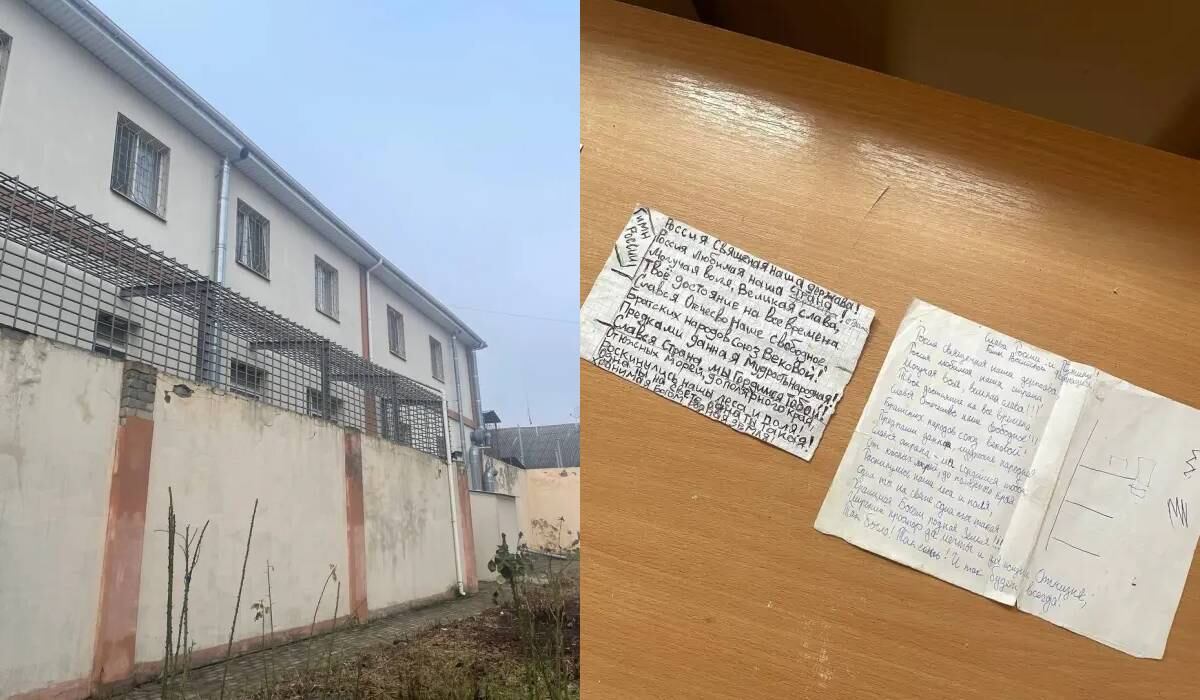 Гимн
России
Россия Священая наша держава!
Россия любимая наша страна!
Могучая воля, Великая слава,
Твоё достояние на все времена
Славься Отечесво наше свободное,
Братских народов союз Вековой!
Предками данная Мудрость народная!
Славься страна мы Гордимся Тобой!
От южных морей до полярного края,
Раскинулись наши леса и поля,
Одна ты на свете, одна такая!
родная земля!
Слава России и
Гимн Российской Федерации
Россия священная наша держава
Россия любимая наша страна
Могучая воля, великая слава!!!
Твоё достояние на все времена
Славься Отечество наше свободное!!!
Братских народов союз вековой!
Предками данная, мудрость народная
Славься страна - мы гордимся тобой
От южных морей, до полярного края
Раскинулись наши леса и поля,
Одна ты на свете, одна ты такая
Хранимая Богом родная Земля!!!
Широкий простор для мечты и для жизни Отчизне,
Так было! Так есть! И так будет всегда!